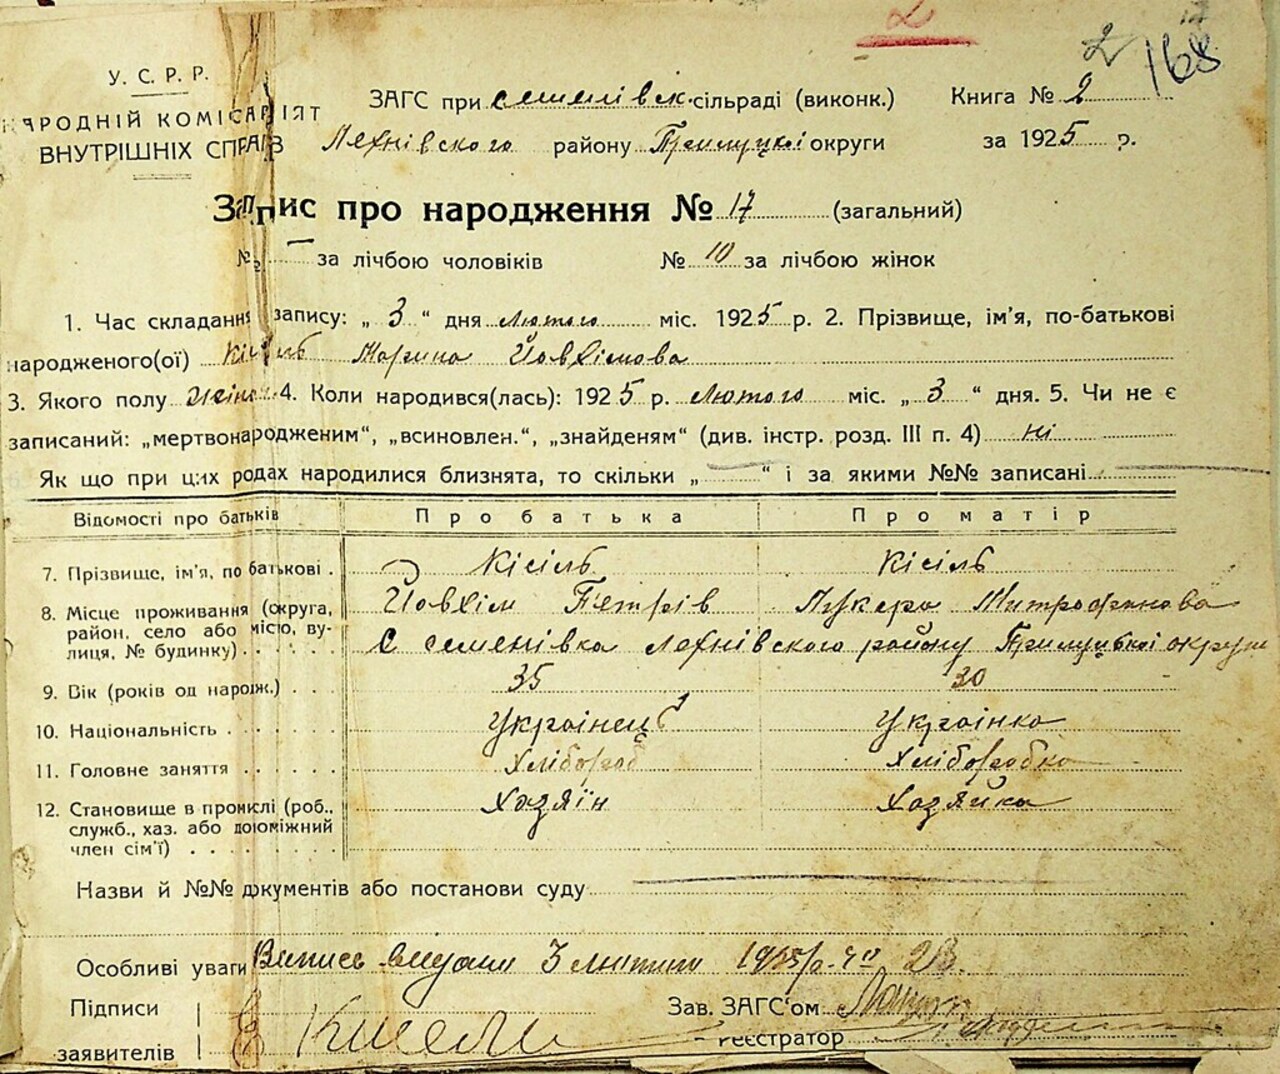 2
2 168
У. С. Р. Р.
НАРОДНІЙ КОМІСАРІЯТ
ВНУТРІШНІХ СПРАВ
ЗАГС при Семенівск. сільраді (виконк.) Книга № 2
Лехнівского району Прилуцкоі округи за 1925 р.
Запис про народження № 17 (загальний)
№ — за лічбою чоловіків № 10 за лічбою жінок
1. Час складання запису: „ 3 “ дня лютого міс. 1925 р. 2. Прізвище, ім'я, по-батькові
народженого(ої) Кісіль Марина Йовхімова
3. Якого полу жіноч. 4. Коли народився(лась): 1925 р. лютого міс. „ 3 “ дня. 5. Чи не є
записаний: „мертвонародженим“, „всиновлен.“, „знайденям“ (див. інстр. розд. III п. 4) ні
Як що при цих родах народилися близнята, то скільки „ — “ і за якими №№ записані
Відомості про батьків Про батька Про матір
7. Прізвище, ім'я, по батькові . Кісіль Кісіль
Йовхім Петрів Лукера Митрофанова
8. Місце проживання (округа,
район, село або місто, ву-
лиця, № будинку) . . . . . С Семенівка Лехнівского району Прилуцькоі округи
9. Вік (років од народж.) . . . 35 30
10. Національність . . . . . . Украінець Украінка
11. Головне заняття . . . . . Хлібороб Хліборобка
12. Становище в промислі (роб.,
служб., хаз. або допоміжний
член сім'ї) . . . . . . . . Хазяїн Хазяйка
Назви й №№ документів або постанови суду
Особливі уваги Випись видана 3 лютого 1925 р. 23.
Підписи
заявителів
Зав. ЗАГС'ом
Реєстратор